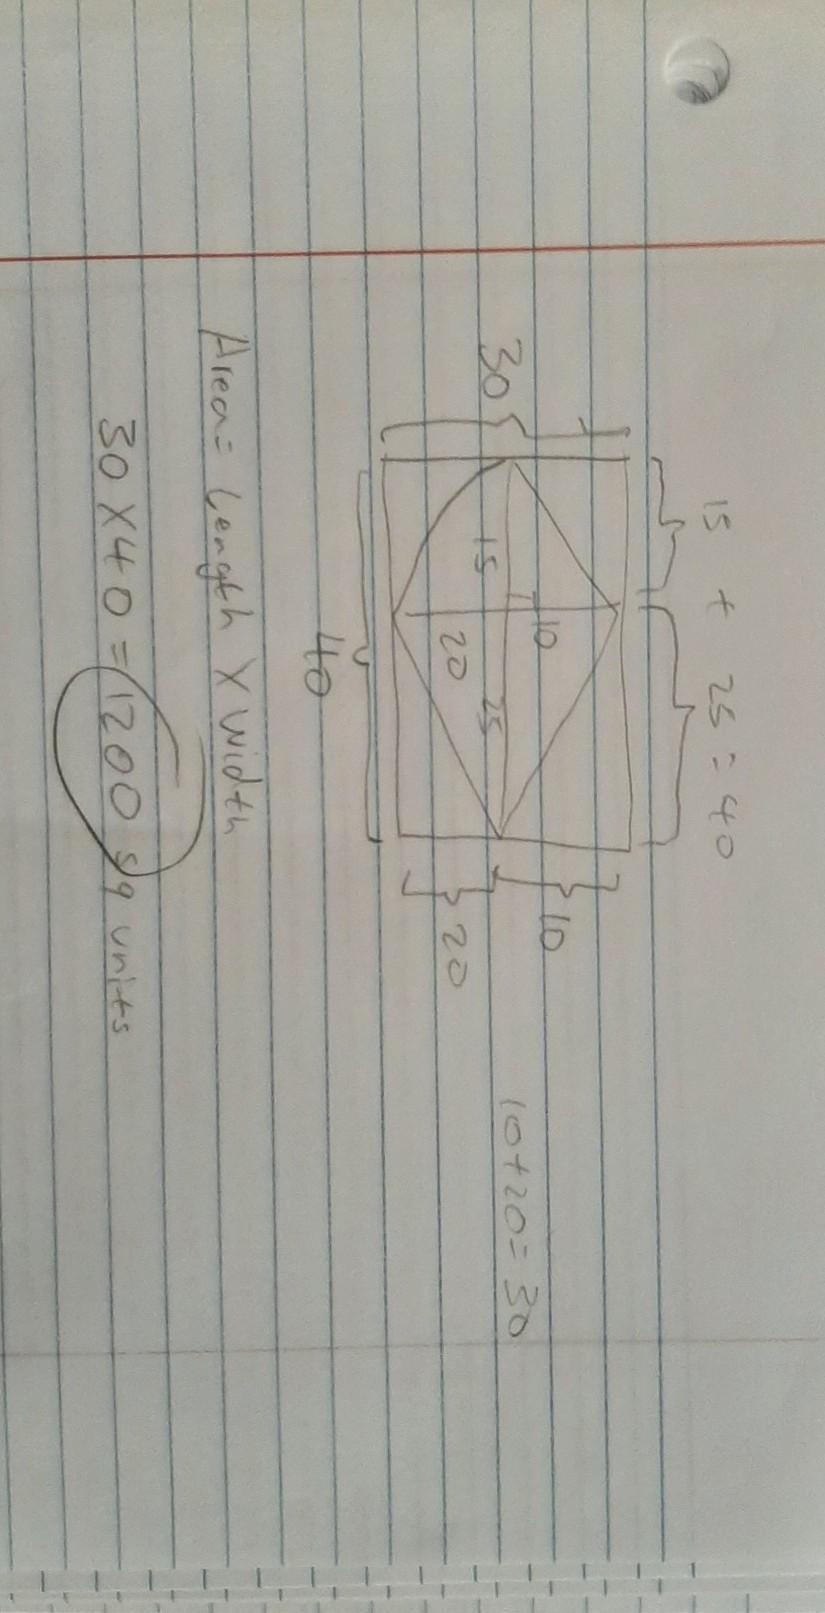 15 + 25 = 40
30
10
15
25
20
10
20
10+20=30
40
Area= Length X width
30 X 40 = 1200 sq units